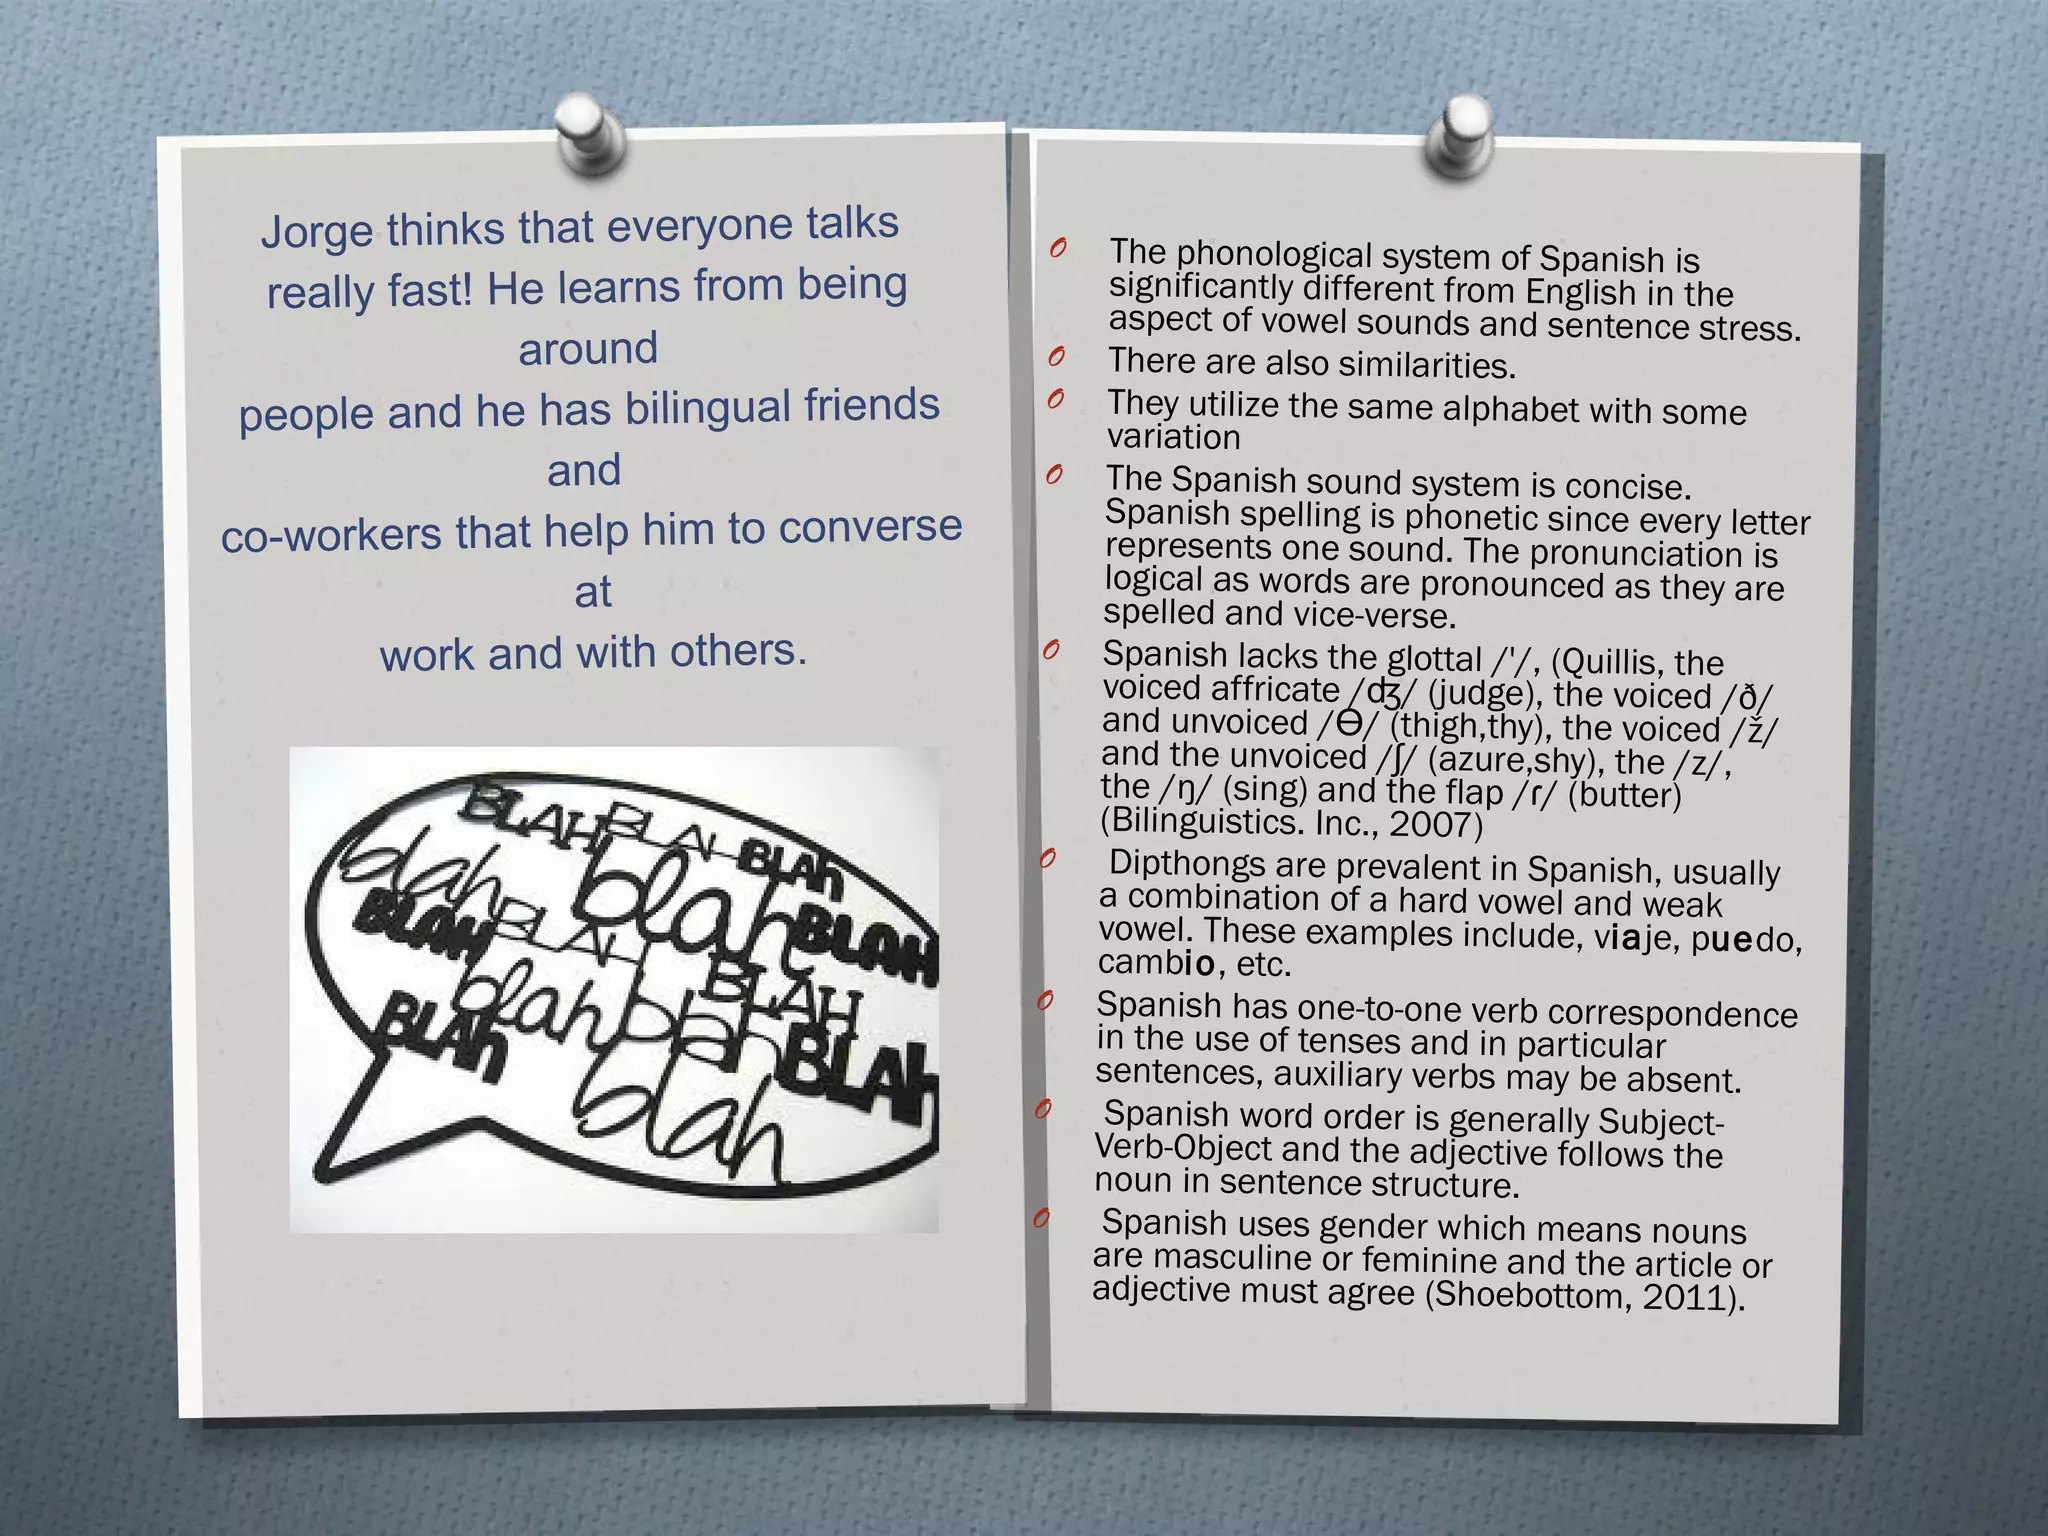 Jorge thinks that everyone talks
really fast! He learns from being
around
people and he has bilingual friends
and
co-workers that help him to converse
at
work and with others.
BLAH BLAH BLAh
blah blah
BLAH BLAH BLAH
blah blah BLAH
BLAh BLAh
blah
The phonological system of Spanish is
significantly different from English in the
aspect of vowel sounds and sentence stress.
There are also similarities.
They utilize the same alphabet with some
variation
The Spanish sound system is concise.
Spanish spelling is phonetic since every letter
represents one sound. The pronunciation is
logical as words are pronounced as they are
spelled and vice-verse.
Spanish lacks the glottal /'/, (Quillis, the
voiced affricate /ʤ/ (judge), the voiced /ð/
and unvoiced /Ө/ (thigh,thy), the voiced /ž/
and the unvoiced /ʃ/ (azure,shy), the /z/,
the /ŋ/ (sing) and the flap /ɾ/ (butter)
(Bilinguistics. Inc., 2007)
Dipthongs are prevalent in Spanish, usually
a combination of a hard vowel and weak
vowel. These examples include, viaje, puedo,
cambio, etc.
Spanish has one-to-one verb correspondence
in the use of tenses and in particular
sentences, auxiliary verbs may be absent.
Spanish word order is generally Subject-
Verb-Object and the adjective follows the
noun in sentence structure.
Spanish uses gender which means nouns
are masculine or feminine and the article or
adjective must agree (Shoebottom, 2011).